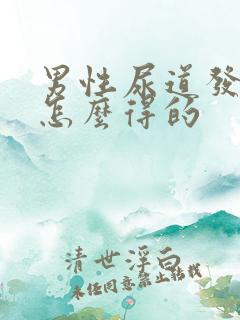 男性尿道發
怎麼得的
清世浮白
未經同意禁止轉載